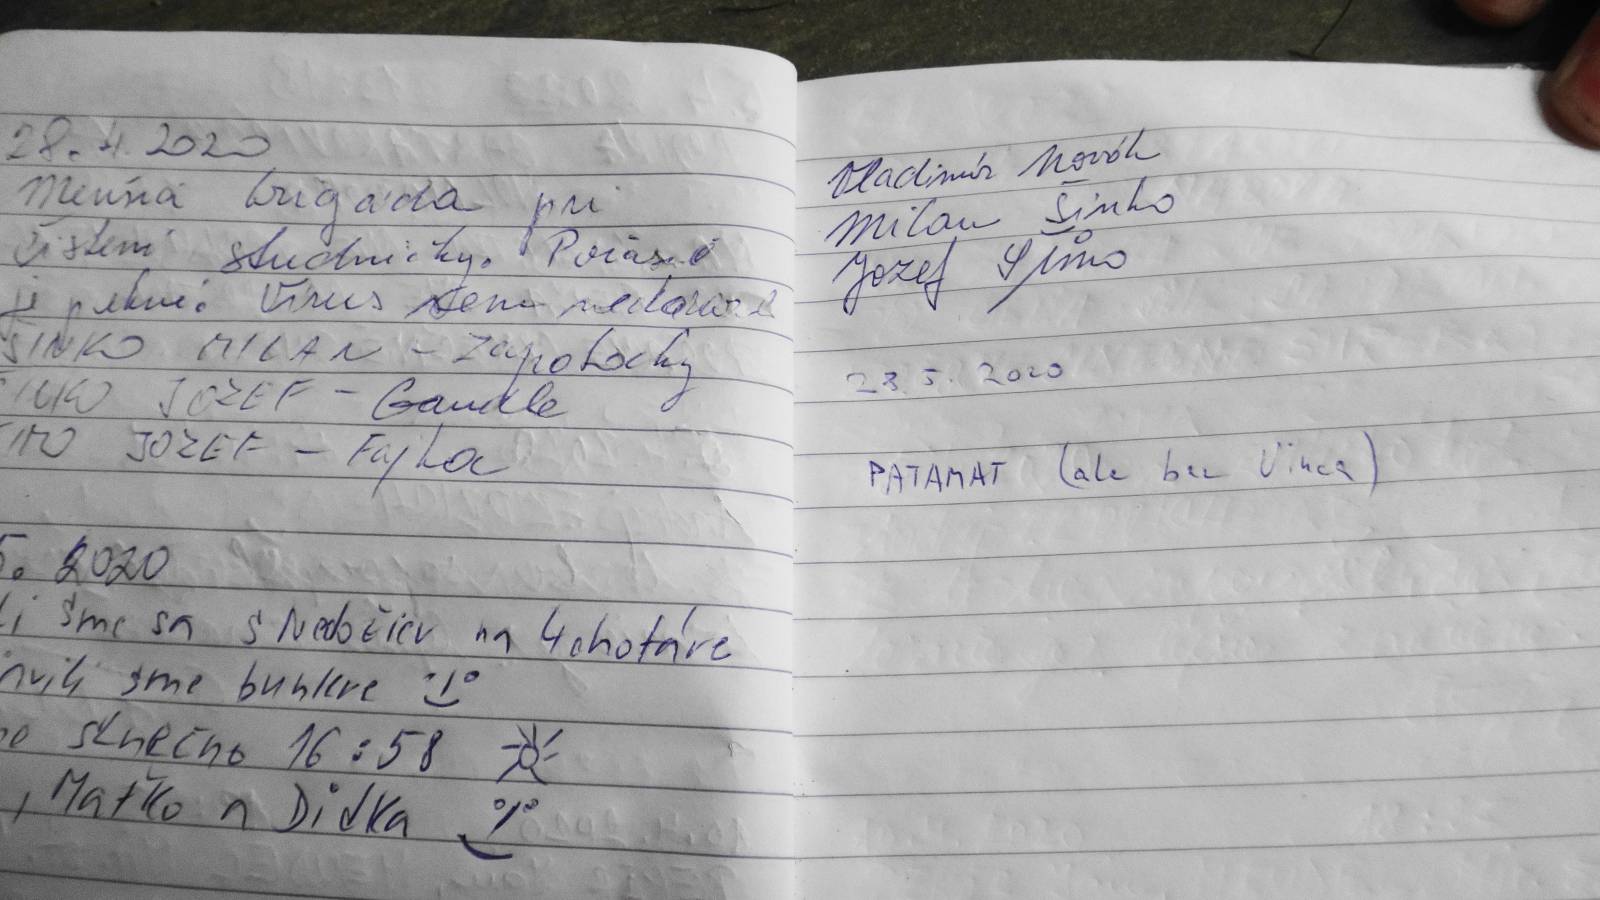 28.4.2020
Menšia brigáda pri
čistení studničky. Počasie
je pekné. Vírus sem nedorazil
ŠINKO MILAN - Zapotocky
ŠINKO JOZEF -
ŠIMO JOZEF - Fajka
5. 2020
li sme sa s Nedožier na 4chotáre
vili sme bunkre
slnečno 16:58
, Maťko a Diďka
Vladimír Novák
Milan Šinko
Jozef Šimo
28.5.2020
PATAMAT (ale bez Vinca)